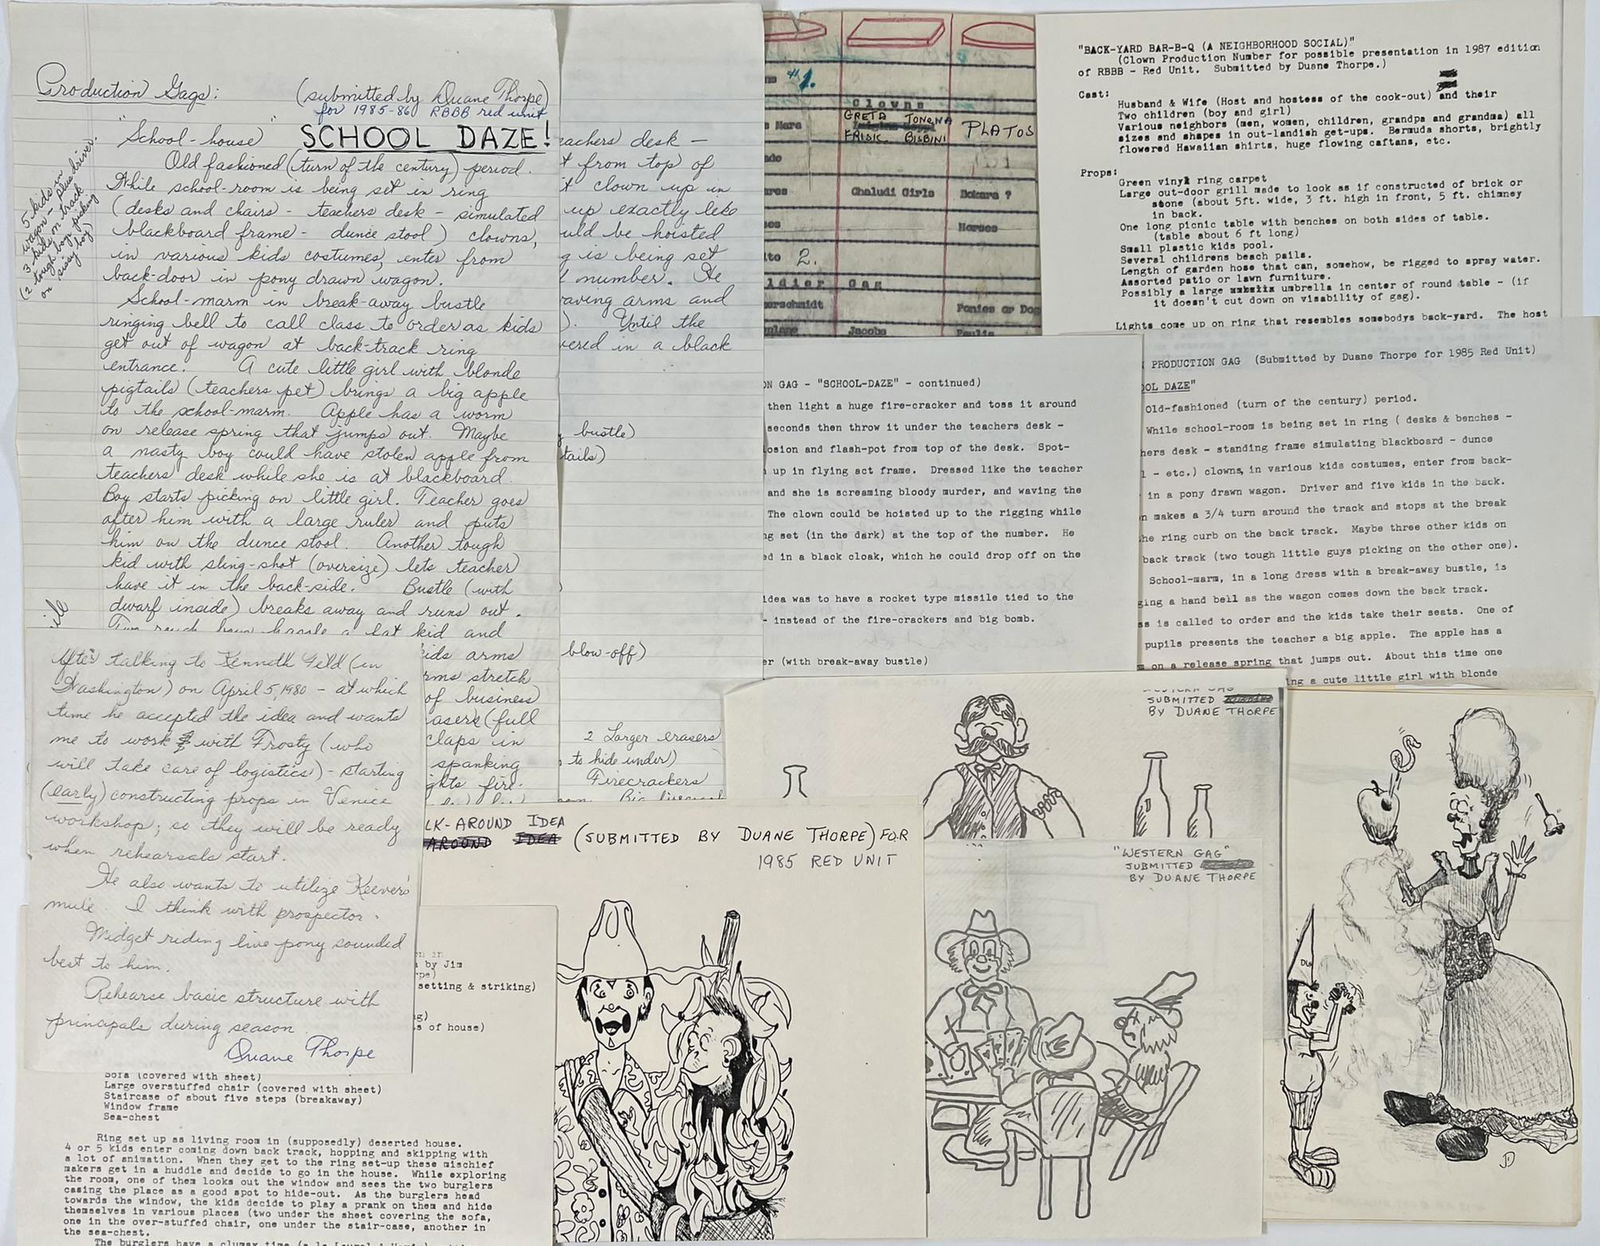 Production Gags:
(submitted by Duane Thorpe)
for 1985-86 RBBB red unit
"School-house"
SCHOOL DAZE!
Old fashioned (turn of the century) period.
While school-room is being set in ring
(desks and chairs - teachers desk - simulated
blackboard frame - dunce stool) clowns,
in various kids costumes, enter from
back-door in pony drawn wagon.
School-marm in break-away bustle
ringing bell to call class to order as kids
get out of wagon at back-track ring
entrance. A cute little girl with blonde
pigtails (teachers pet) brings a big apple
to the school-marm. Apple has a worm
on release spring that jumps out. Maybe
a nasty boy could have stolen apple from
teachers desk while she is at blackboard.
Boy starts picking on little girl. Teacher goes
after him with a large ruler and puts
him on the dunce stool. Another tough
kid with sling-shot (oversize) lets teacher
have it in the back-side. Bustle (with
dwarf inside) breaks away and runs out.
5 kids in
wagon - plus driver.
3 kids on track
(2 tough boys picking
on sissy boy)
After talking to Kenneth Feld (in
Washington) on April 5, 1980 - at which
time he accepted the idea and wants
me to work with Frosty (who
will take care of logistics) - starting
(early) constructing props in Venice
workshop; so they will be ready
when rehearsals start.
He also wants to utilize Keever's
mule. I think with prospector.
Midget riding live pony sounded
best to him.
Rehearse basic structure with
principals during season
Duane Thorpe
eachers desk -
t from top of
t clown up in
up exactly like
uld be hoisted
g is being set
number. He
aving arms and
). Until the
vered in a black
bustle)
tails)
blow-off)
2 Larger erasers
to hide under)
Firecrackers
ids arms
rms stretch
of business
aser (full
claps in
spanking
ghts fire-
#1.
Clowns
GRETA TONONA
FRISK. BISBINI
PLATOS
Mars
Chaludi Girls
Bokara ?
Horses
2.
ldier Gag
erschmidt
Ponies or Dog
Jacobs
Paulis
"BACK-YARD BAR-B-Q (A NEIGHBORHOOD SOCIAL)"
(Clown Production Number for possible presentation in 1987 edition
of RBBB - Red Unit. Submitted by Duane Thorpe.)
Cast:
Husband & Wife (Host and hostess of the cook-out) and their
Two children (boy and girl)
Various neighbors (men, women, children, grandpa and grandma) all
sizes and shapes in out-landish get-ups. Bermuda shorts, brightly
flowered Hawaiian shirts, huge flowing caftans, etc.
Props:
Green vinyl ring carpet
Large out-door grill made to look as if constructed of brick or
stone (about 5ft. wide, 3 ft. high in front, 5 ft. chimney
in back.
One long picnic table with benches on both sides of table.
(table about 6 ft long)
Small plastic kids pool.
Several childrens beach pails.
Length of garden hose that can, somehow, be rigged to spray water.
Assorted patio or lawn furniture.
Possibly a large umbrella in center of round table - (if
it doesn't cut down on visability of gag).
Lights come up on ring that resembles somebodys back-yard. The host
N GAG - "SCHOOL-DAZE" - continued)
then light a huge fire-cracker and toss it around
seconds then throw it under the teachers desk -
losion and flash-pot from top of the desk. Spot-
up in flying act frame. Dressed like the teacher
and she is screaming bloody murder, and waving the
The clown could be hoisted up to the rigging while
ng set (in the dark) at the top of the number. He
ed in a black cloak, which he could drop off on the
idea was to have a rocket type missile tied to the
- instead of the fire-crackers and big bomb.
er (with break-away bustle)
PRODUCTION GAG (Submitted by Duane Thorpe for 1985 Red Unit)
OOL DAZE"
Old-fashioned (turn of the century) period.
While school-room is being set in ring ( desks & benches -
hers desk - standing frame simulating blackboard - dunce
l - etc.) clowns, in various kids costumes, enter from back-
in a pony drawn wagon. Driver and five kids in the back.
n makes a 3/4 turn around the track and stops at the break
he ring curb on the back track. Maybe three other kids on
back track (two tough little guys picking on the other one).
School-marm, in a long dress with a break-away bustle, is
ging a hand bell as the wagon comes down the back track.
ss is called to order and the kids take their seats. One of
pupils presents the teacher a big apple. The apple has a
m on a release spring that jumps out. About this time one
ing a cute little girl with blonde
WESTERN GAG
SUBMITTED
BY DUANE THORPE
"WESTERN GAG"
SUBMITTED
BY DUANE THORPE
LK-AROUND IDEA
AROUND IDEA
(SUBMITTED BY DUANE THORPE) FOR
1985 RED UNIT
a by Jim
rpe)
setting & striking)
ng)
s of house)
Sofa (covered with sheet)
Large overstuffed chair (covered with sheet)
Staircase of about five steps (breakaway)
Window frame
Sea-chest
Ring set up as living room in (supposedly) deserted house.
4 or 5 kids enter coming down back track, hopping and skipping with
a lot of animation. When they get to the ring set-up these mischief
makers get in a huddle and decide to go in the house. While exploring
the room, one of them looks out the window and sees the two burglers
casing the place as a good spot to hide-out. As the burglers head
towards the window, the kids decide to play a prank on them and hide
themselves in various places (two under the sheet covering the sofa,
one in the over-stuffed chair, one under the stair-case, another in
the sea-chest.
DU